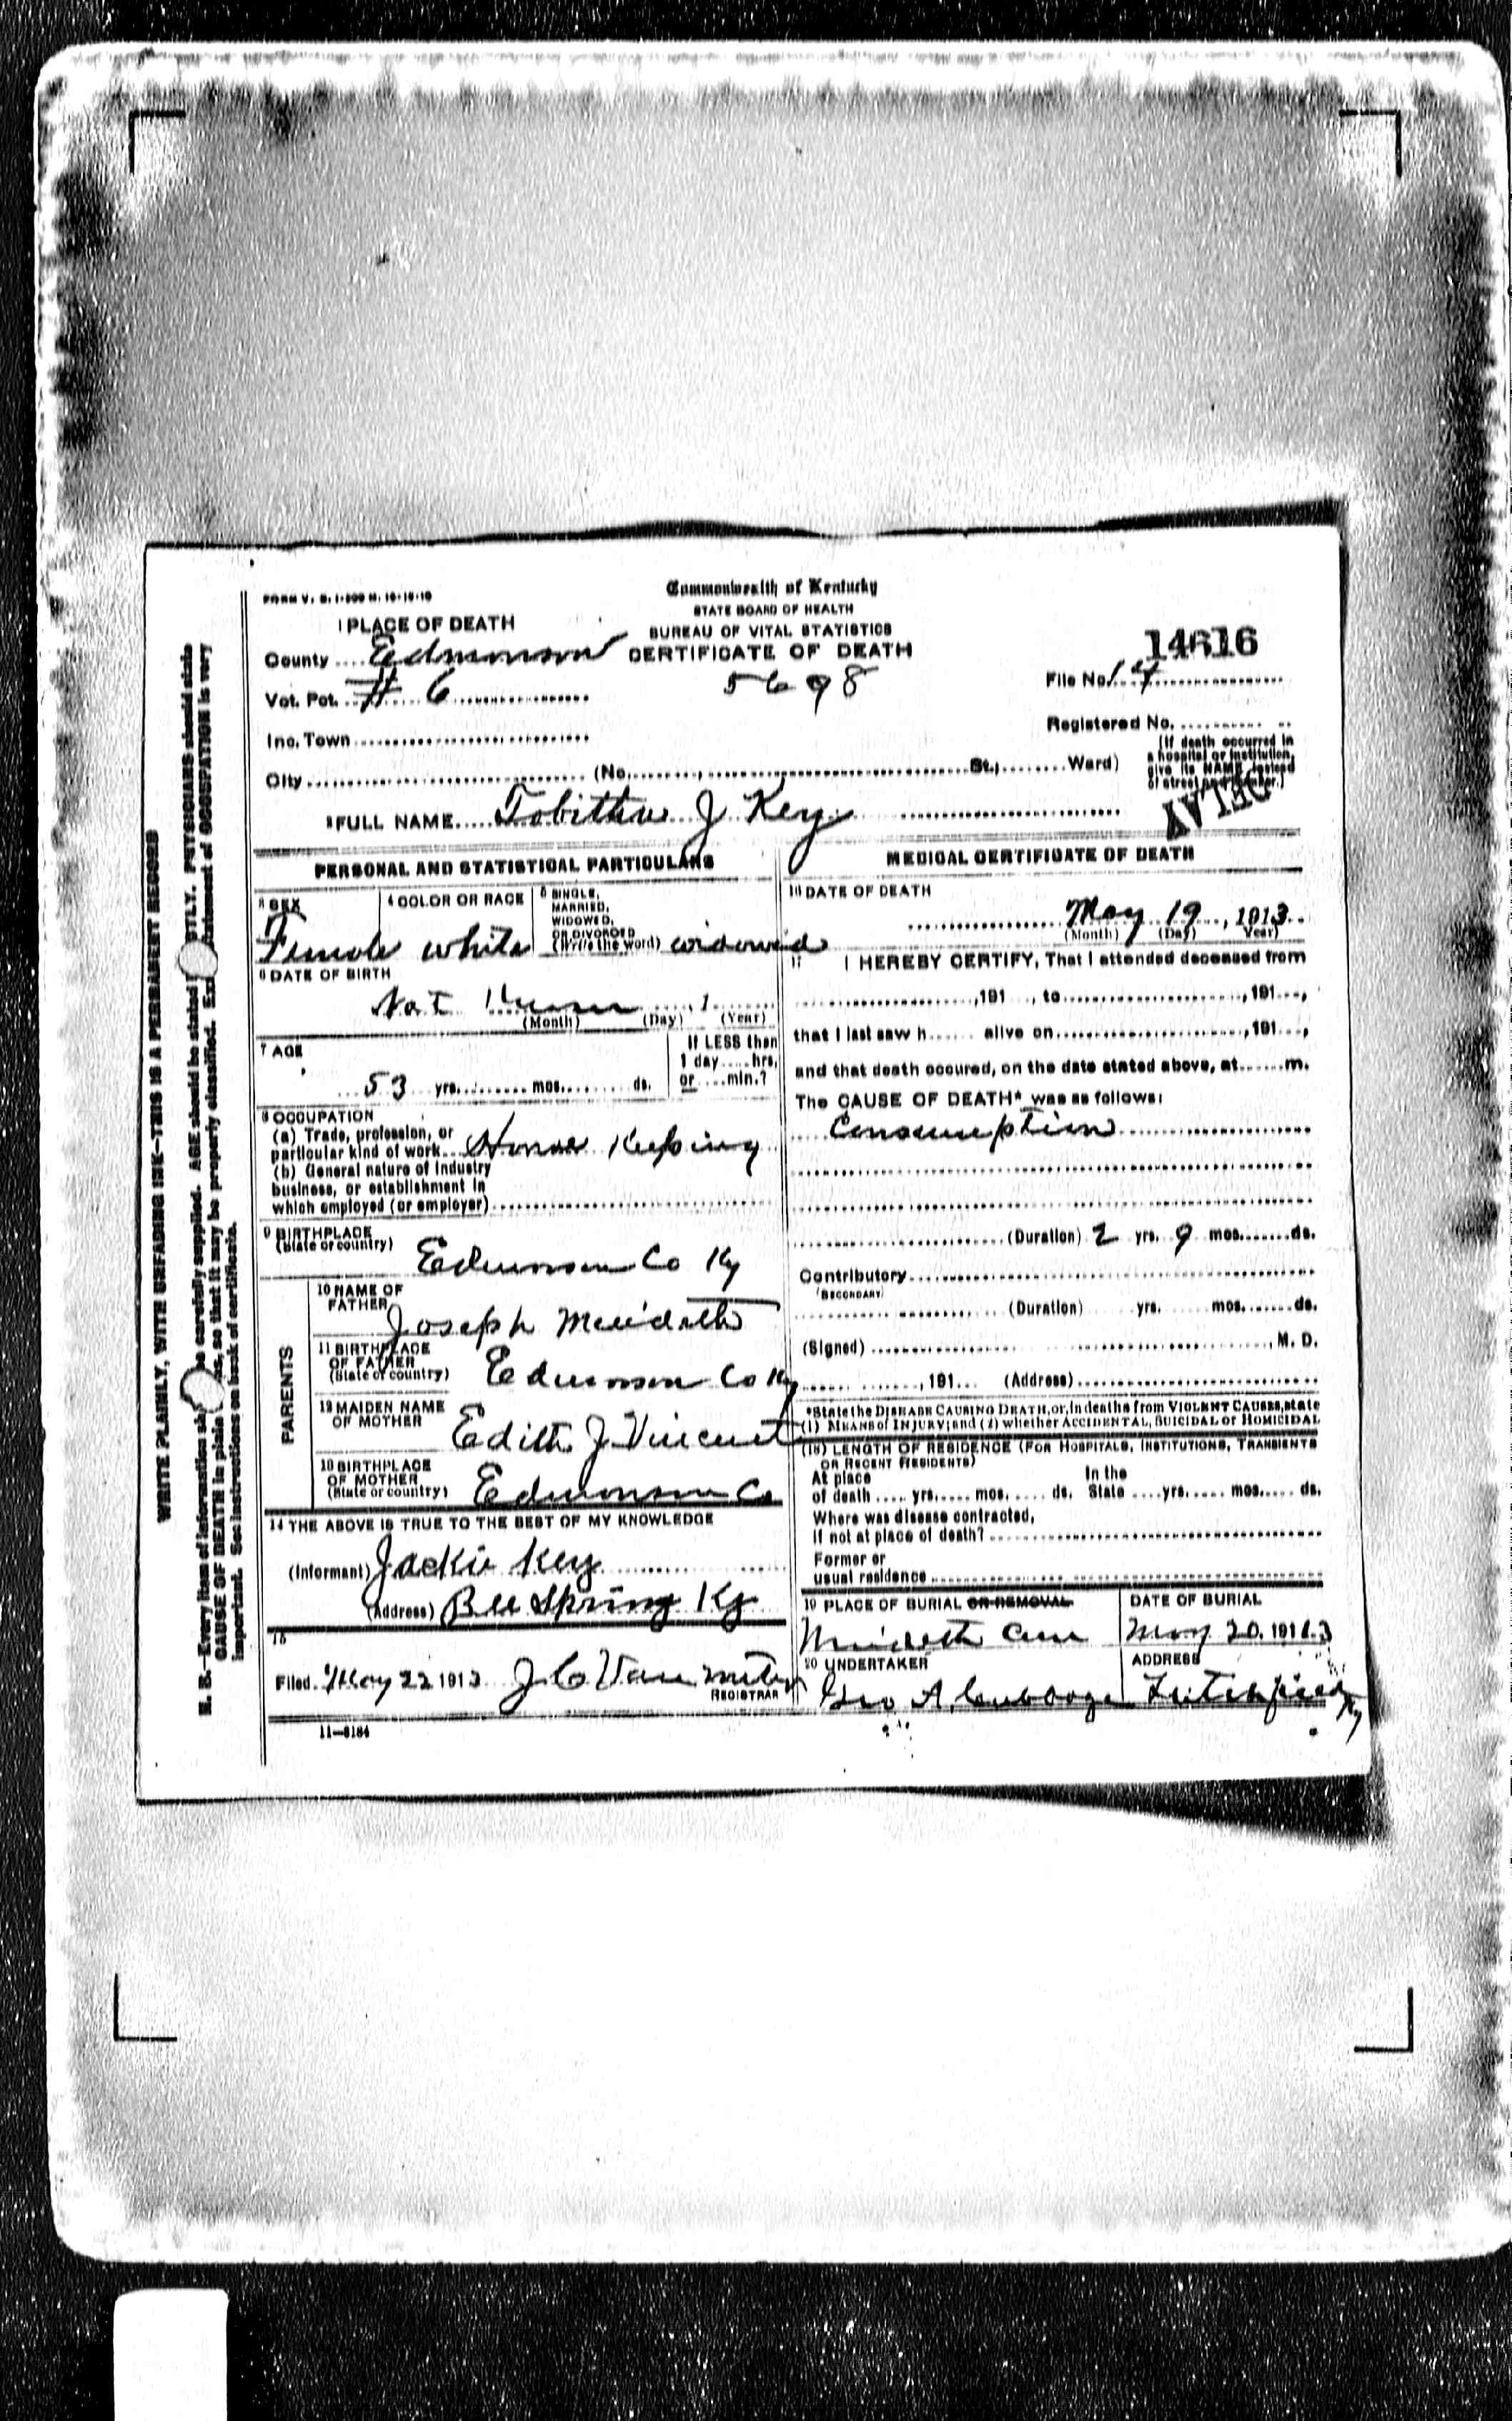 FORM V. S. 1-500 M. 10-18-10
Commonwealth of Kentucky
STATE BOARD OF HEALTH
BUREAU OF VITAL STATISTICS
CERTIFICATE OF DEATH
1 PLACE OF DEATH
County Edmonson
Vot. Pct. # 6
5698
14616
File No. 14
Inc. Town
Registered No.
City (No. St., Ward)
(If death occurred in
a hospital or institution,
give its NAME instead
of street and number.)
2 FULL NAME Tobitha J Key
PERSONAL AND STATISTICAL PARTICULARS
3 SEX
Female
4 COLOR OR RACE
white
5 SINGLE,
MARRIED,
WIDOWED,
OR DIVORCED
(Write the word) widowed
6 DATE OF BIRTH
Not
(Month) (Day) (Year)
7 AGE
53 yrs. mos. ds.
If LESS than
1 day hrs,
or min.?
8 OCCUPATION
(a) Trade, profession, or
particular kind of work House Keeping
(b) General nature of industry
business, or establishment in
which employed (or employer)
9 BIRTHPLACE
(State or country) Edmonson Co Ky
PARENTS
10 NAME OF
FATHER Joseph Merideth
11 BIRTHPLACE
OF FATHER
(State or country) Edmonson Co Ky
12 MAIDEN NAME
OF MOTHER Edith J Vincent
13 BIRTHPLACE
OF MOTHER
(State or country) Edmonson Co
14 THE ABOVE IS TRUE TO THE BEST OF MY KNOWLEDGE
(Informant) Jackie Key
(Address) Bee Spring Ky
15
Filed May 22 1913 J. C. Van meter
REGISTRAR
11-3184
MEDICAL CERTIFICATE OF DEATH
16 DATE OF DEATH
May 19, 1913
(Month) (Day) Year)
17 I HEREBY CERTIFY, That I attended deceased from
, 191 , to , 191 ,
that I last saw h alive on , 191 ,
and that death occured, on the date stated above, at m.
The CAUSE OF DEATH* was as follows:
Consumption
(Duration) 2 yrs. 9 mos. ds.
Contributory
(SECONDARY)
(Duration) yrs. mos. ds.
(Signed) , M. D.
, 191 (Address)
*State the DISEASE CAUSING DEATH, or, in deaths from VIOLENT CAUSES, state
(1) MEANS of INJURY; and (2) whether ACCIDENTAL, SUICIDAL or HOMICIDAL
(18) LENGTH OF RESIDENCE (FOR HOSPITALS, INSTITUTIONS, TRANSIENTS
OR RECENT RESIDENTS)
At place
of death yrs. mos. ds.
In the
State yrs. mos. ds.
Where was disease contracted,
if not at place of death?
Former or
usual residence
19 PLACE OF BURIAL OR REMOVAL
Merideth
DATE OF BURIAL
May 20, 1913
20 UNDERTAKER
Geo A
ADDRESS
Litchfield Ky
WRITE PLAINLY, WITH UNFADING INK—THIS IS A PERMANENT RECORD
N. B.—Every item of information be carefully supplied. AGE should be stated PHYSICIANS should state
CAUSE OF DEATH in plain so that it may be properly classified. of OCCUPATION is very
important. See instructions on back of certificate.